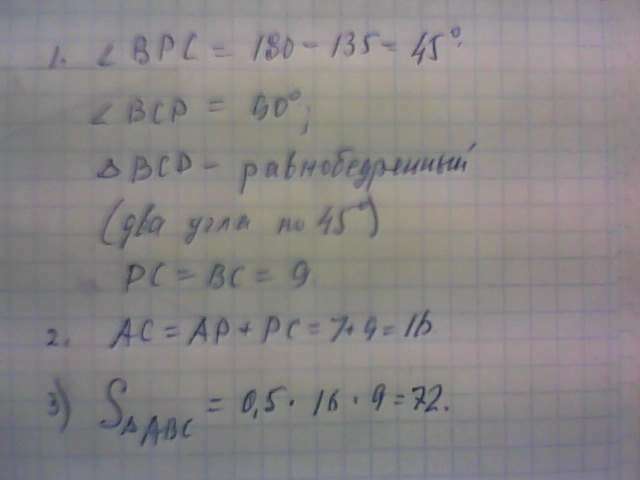 1. ∠ BPC = 180 - 135 = 45°.
∠ BCP = 90°;
Δ BCD - равнобедренный
(два угла по 45°)
PC = BC = 9
2. AC = AP + PC = 7 + 9 = 16
3) S ΔABC = 0,5 · 16 · 9 = 72.